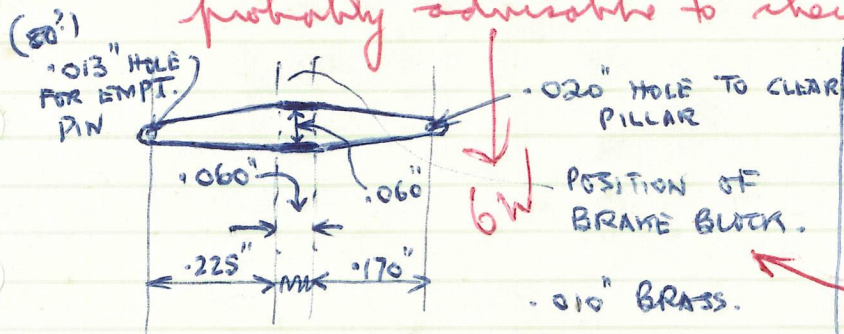 probably advisable to
(80?)
.013" HOLE
FOR EMPT.
PIN
.020" HOLE TO CLEAR
PILLAR
.060"
.060"
6W
POSITION OF
BRAKE BLOCK.
.225"
.170"
.010" BRASS.